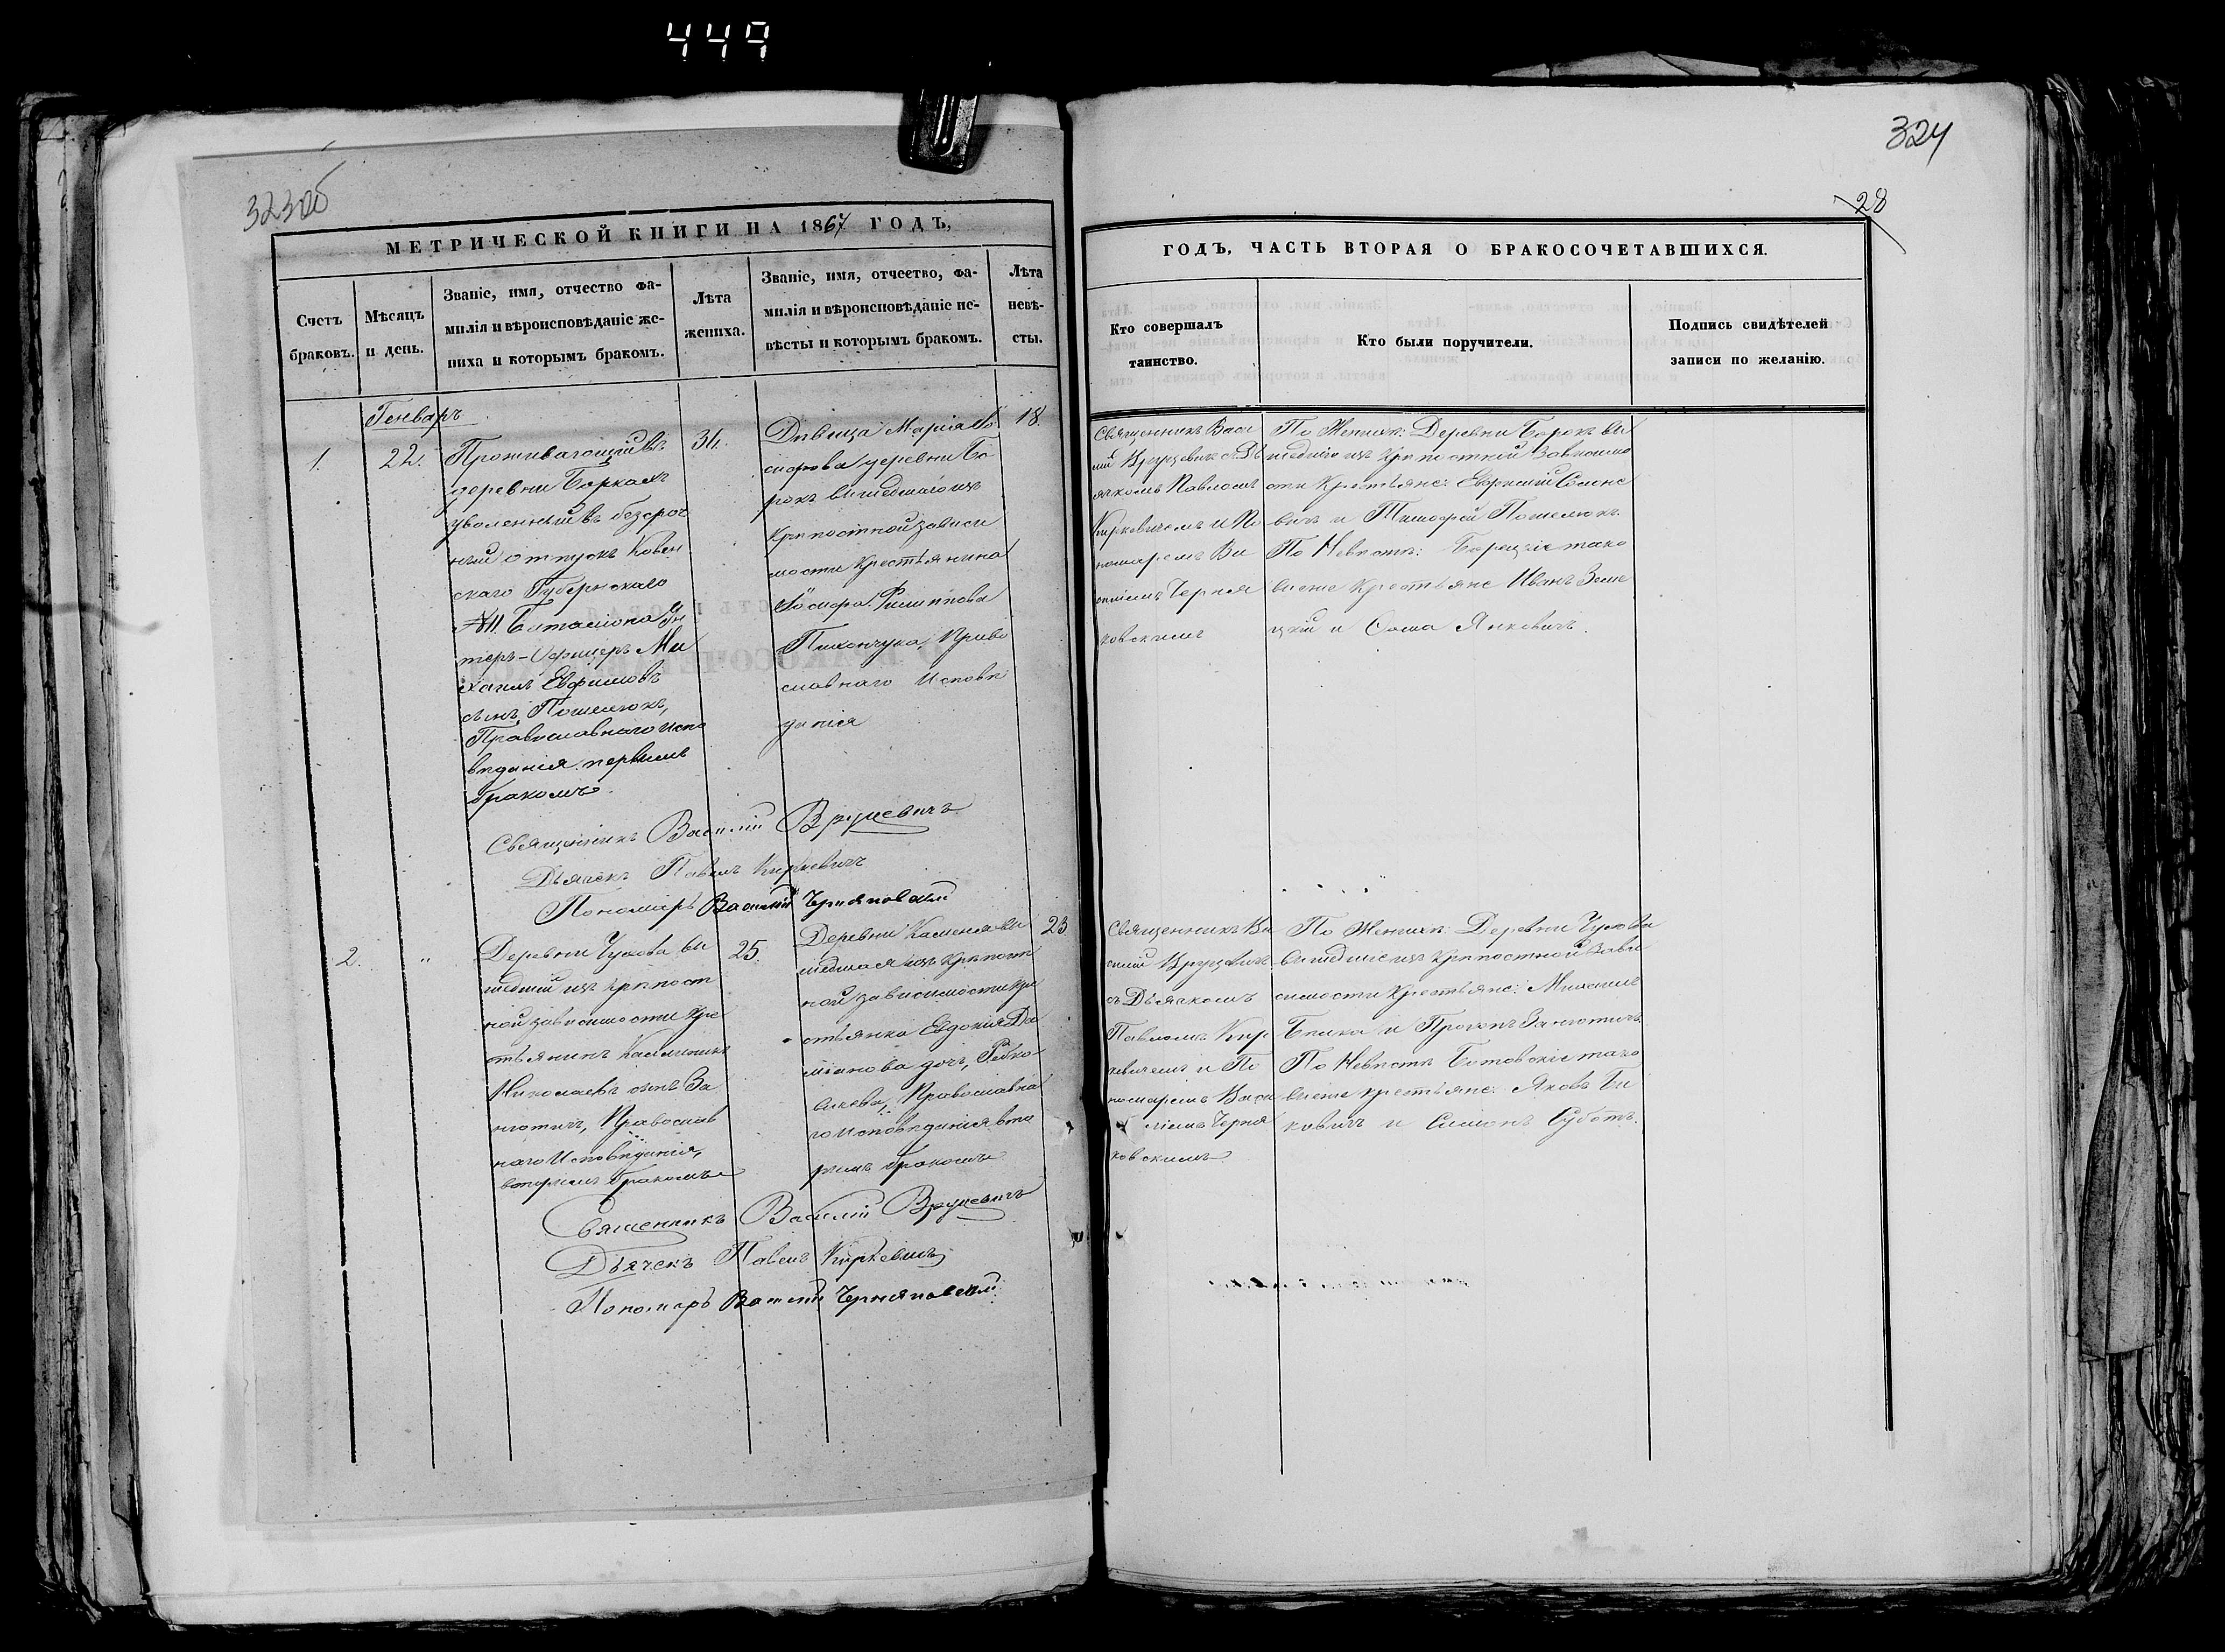 449
323об
МЕТРИЧЕСКОЙ КНИГИ НА 1867 ГОДЪ,
Счетъ браковъ.
Мѣсяцъ и день.
Званіе, имя, отчество фа-
милія и вѣроисповѣданіе же-
ниха и которымъ бракомъ.
Лѣта
жениха.
Званіе, имя, отчество, фа-
милія и вѣроисповѣданіе не-
вѣсты и которымъ бракомъ.
Лѣта
невѣ-
сты.
Генварь
1.
22.
Проживающій въ
деревни Боркахъ
уволенный въ безсроч
ный отпускъ Ковен
скаго Губернскаго
Баталіона Ун
теръ-Офицеръ Ми
хаилъ Евфимовъ
сынъ, Пошелюкъ,
Православнаго испо
вѣданія. первымъ
бракомъ.
34.
Дѣвица Марія Іо
сифова деревни Бо
рокъ вышедшаго изъ
крѣпостной зависи
мости Крестьянина
Іосифа Филипова
Пилипчука, Право
славнаго Исповѣ
данія
18.
Священникъ Василій Вруцевичъ
Дьячекъ Павелъ Киркевичъ
Пономарь Василій Черняковскій
2.
"
Деревни Чухова вы
шедшій изъ крѣпост
ной зависимости кре
стьянинъ Каллиникъ
Николаевъ сынъ За
нютичъ, Православ
наго Исповѣданія,
вторымъ бракомъ
25.
Деревни Каменя вы
шедшая изъ крѣпост
ной зависимости кре
стьянка Евдокія Да
міанова дочь,
Православна
го исповѣданія вто
рымъ бракомъ
23
Священникъ Василій Вруцевичъ
Дьячекъ Павелъ Киркевичъ
Пономарь Василій Черняковскій
324
28
ГОДЪ, ЧАСТЬ ВТОРАЯ О БРАКОСОЧЕТАВШИХСЯ.
Кто совершалъ
таинство.
Кто были поручители.
Подпись свидѣтелей
записи по желанію.
Священникъ Васи
лій Вруцевичъ съ Дь
ячкомъ Павломъ
Киркевичемъ и По
номаремъ Ва
силіемъ Черня
ковскимъ
По Женихѣ: Деревни Борокъ вы
шедшіе изъ крѣпостной Зависимо
сти Крестьяне: Евфимій Семене
вичъ и Тимофей Пошелюкъ.
По Невѣстѣ: Борецкіе тако
вые же крестьяне Иванъ
и Фома Янковичъ.
Священникъ Ва
силій Вруцевичъ
съ Дьячкомъ
Павломъ Кир
кевичемъ и По
номаремъ Васи
ліемъ Черня
ковскимъ
По Женихѣ: Деревни Чухова
вышедшіе изъ крѣпостной Зави
симости Крестьяне: Михаилъ
и Прокопъ Занютичъ.
По Невѣстѣ тако
вые же крестьяне: Яковъ Бы
ковичъ и Симонъ Суботъ.